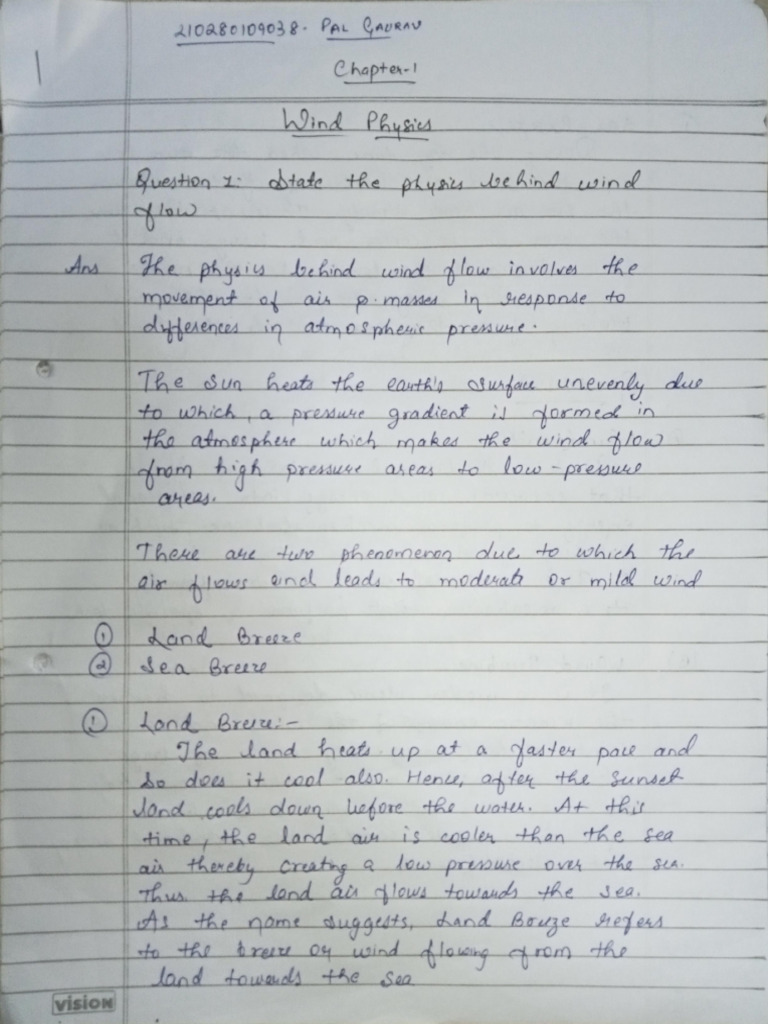 210280109038. PAL GAURAV
1
Chapter-1
Wind Physics
Question 1: State the physics behind wind
flow
Ans The physics behind wind flow involves the
movement of air p. masses in response to
differences in atmospheric pressure.
The sun heats the earth's surface unevenly due
to which, a pressure gradient is formed in
the atmosphere which makes the wind flow
from high pressure areas to low-pressure
areas.
There are two phenomenon due to which the
air flows and leads to moderate or mild wind
① Land Breeze
② Sea Breeze
① Land Breeze:-
The land heats up at a faster pace and
so does it cool also. Hence, after the sunset
land cools down before the water. At this
time, the land air is cooler than the sea
air thereby creating a low pressure over the sea.
Thus the land air flows towards the sea.
As the name suggests, Land Breeze refers
to the breeze or wind flowing from the
land towards the sea
vision